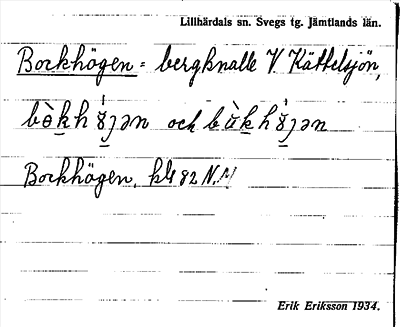 Lillhärdals sn. Svegs tg. Jämtlands län.
Borkhögen = bergknalle V. Kättelsjön,
och
Borkhögen, kbl 82 N.V.
Erik Eriksson 1934.